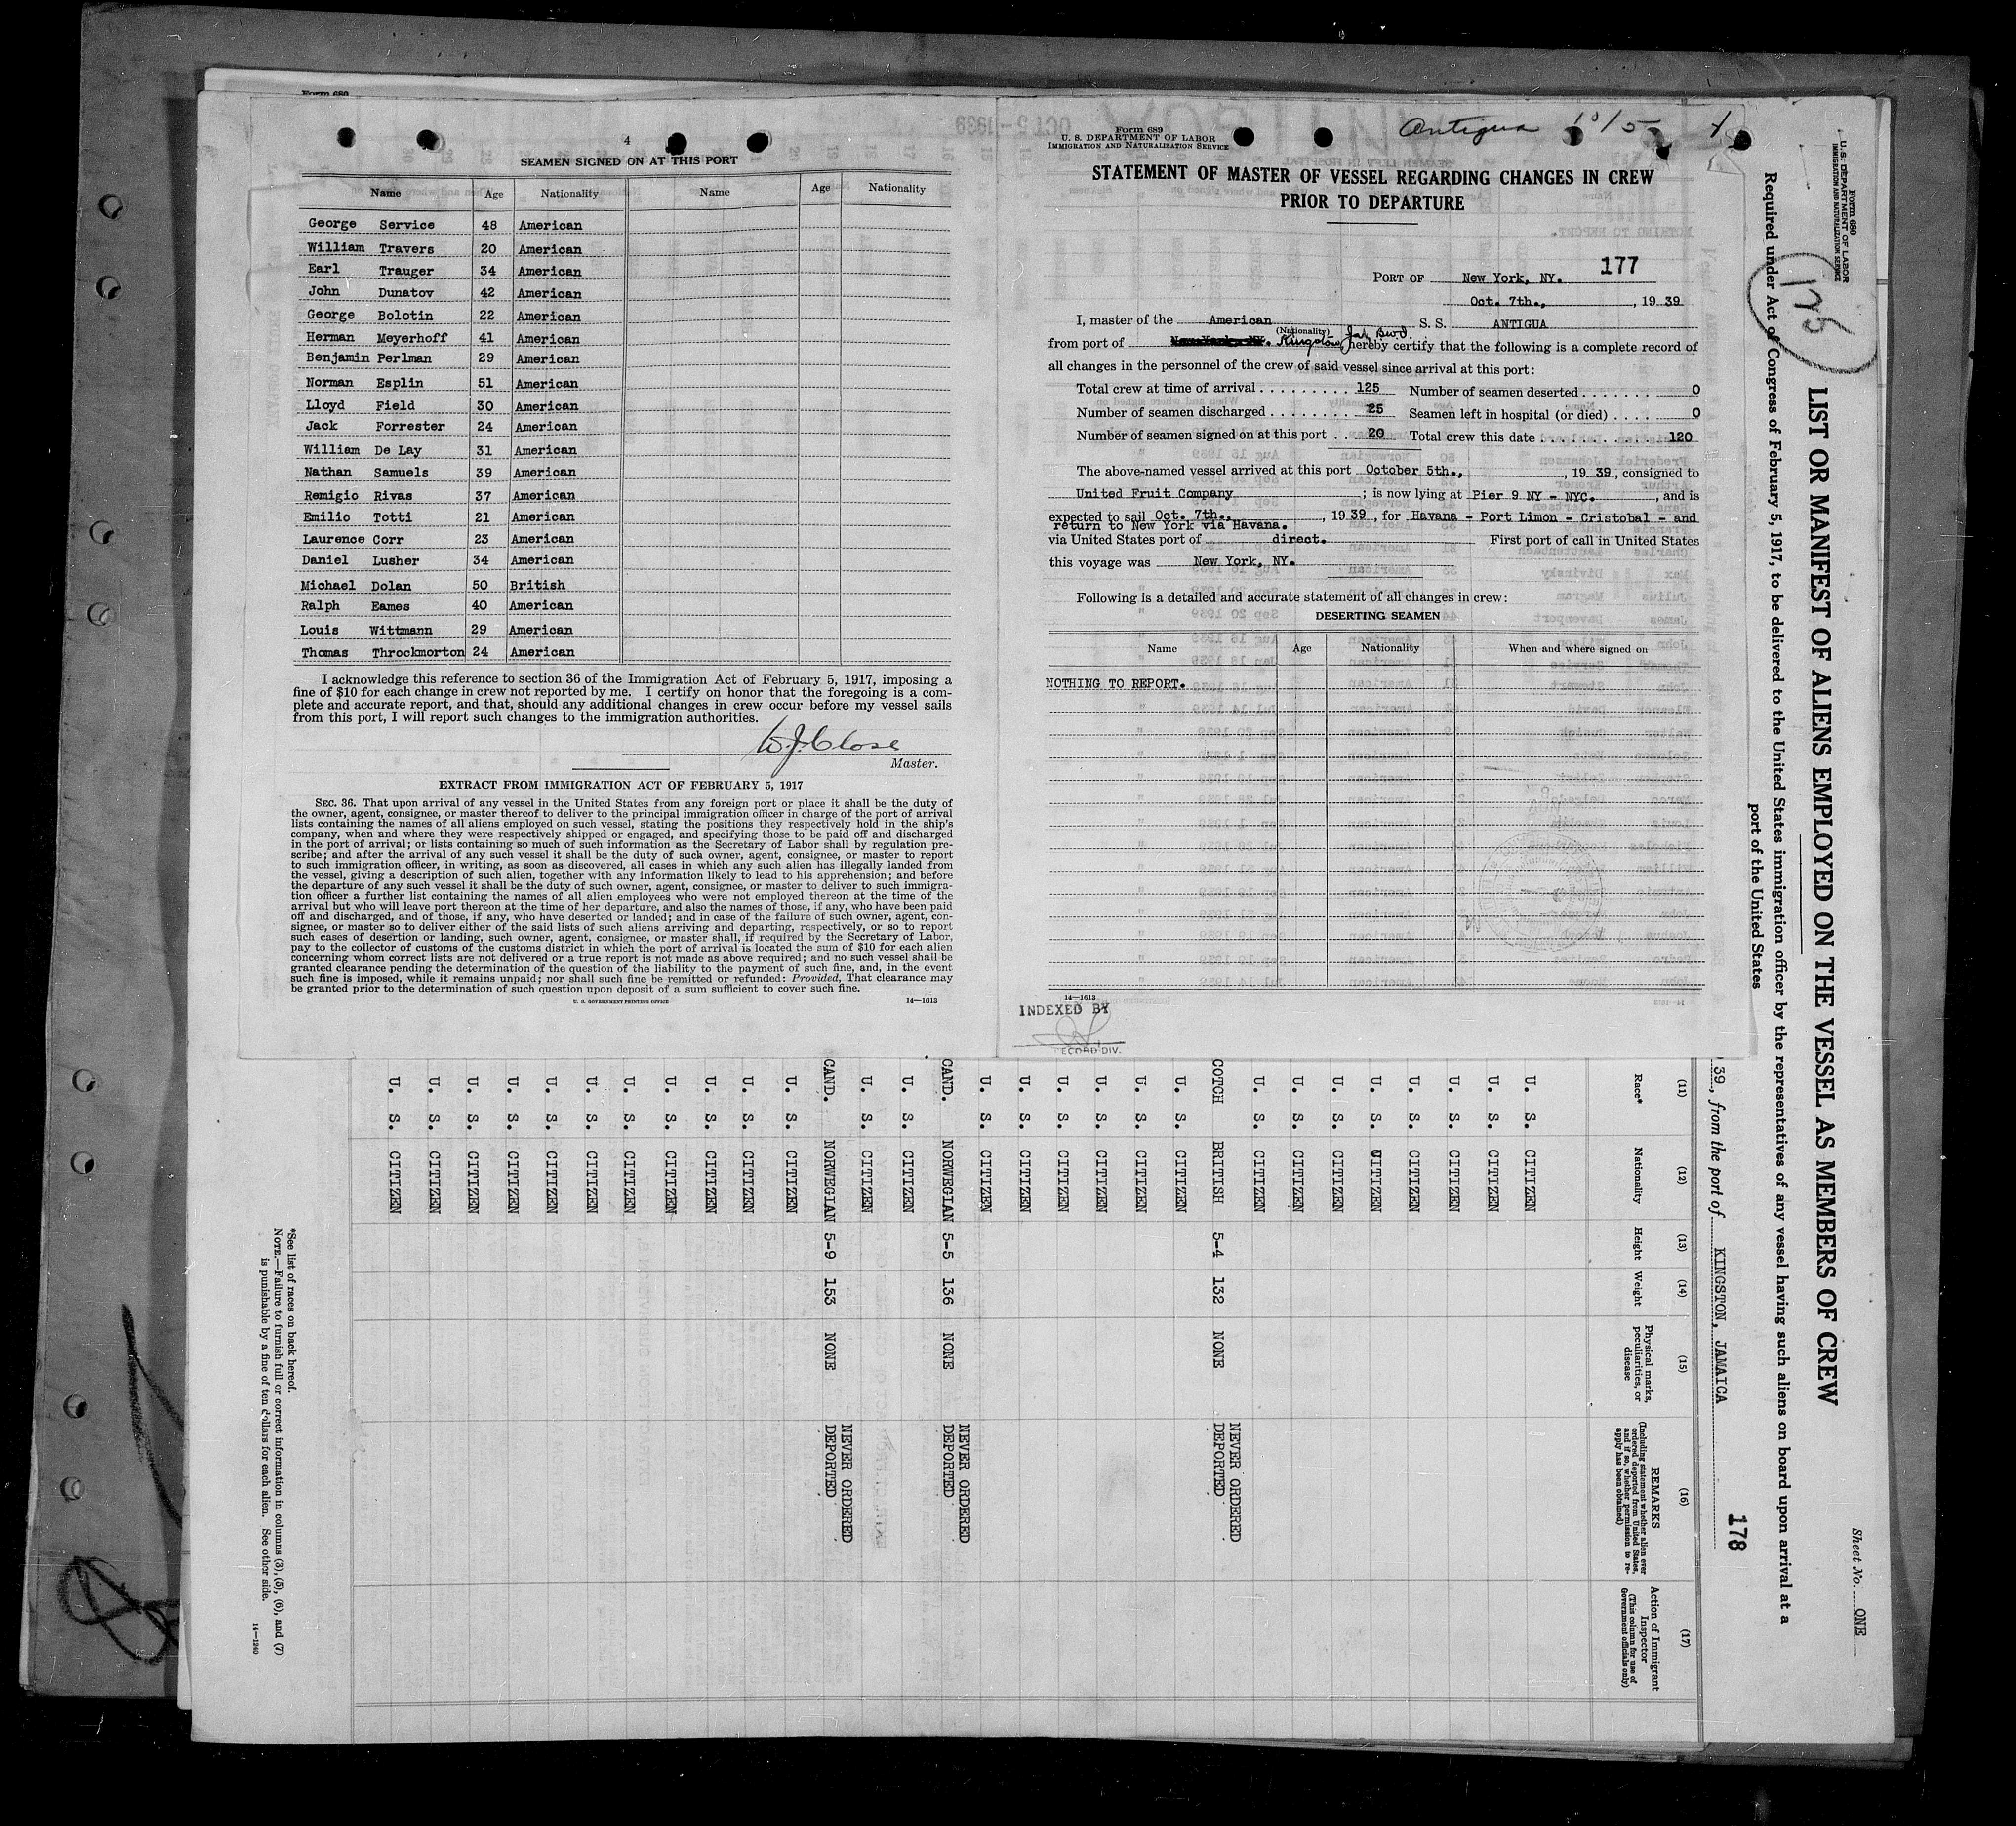 Form 680
4
SEAMEN SIGNED ON AT THIS PORT
Name Age Nationality Name Age Nationality
George Service 48 American
William Travers 20 American
Earl Trauger 34 American
John Dunatov 42 American
George Bolotin 22 American
Herman Meyerhoff 41 American
Benjamin Perlman 29 American
Norman Esplin 51 American
Lloyd Field 30 American
Jack Forrester 24 American
William De Lay 31 American
Nathan Samuels 39 American
Remigio Rivas 37 American
Emilio Totti 21 American
Laurence Corr 23 American
Daniel Lusher 34 American
Michael Dolan 50 British
Ralph Eames 40 American
Louis Wittmann 29 American
Thomas Throckmorton 24 American
I acknowledge this reference to section 36 of the Immigration Act of February 5, 1917, imposing a
fine of $10 for each change in crew not reported by me. I certify on honor that the foregoing is a com-
plete and accurate report, and that, should any additional changes in crew occur before my vessel sails
from this port, I will report such changes to the immigration authorities.
W.J. Close
Master.
EXTRACT FROM IMMIGRATION ACT OF FEBRUARY 5, 1917
SEC. 36. That upon arrival of any vessel in the United States from any foreign port or place it shall be the duty of
the owner, agent, consignee, or master thereof to deliver to the principal immigration officer in charge of the port of arrival
lists containing the names of all aliens employed on such vessel, stating the positions they respectively hold in the ship's
company, when and where they were respectively shipped or engaged, and specifying those to be paid off and discharged
in the port of arrival; or lists containing so much of such information as the Secretary of Labor shall by regulation pre-
scribe; and after the arrival of any such vessel it shall be the duty of such owner, agent, consignee, or master to report
to such immigration officer, in writing, as soon as discovered, all cases in which any such alien has illegally landed from
the vessel, giving a description of such alien, together with any information likely to lead to his apprehension; and before
the departure of any such vessel it shall be the duty of such owner, agent, consignee, or master to deliver to such immigra-
tion officer a further list containing the names of all alien employees who were not employed thereon at the time of the
arrival but who will leave port thereon at the time of her departure, and also the names of those, if any, who have been paid
off and discharged, and of those, if any, who have deserted or landed; and in case of the failure of such owner, agent, con-
signee, or master so to deliver either of the said lists of such aliens arriving and departing, respectively, or so to report
such cases of desertion or landing, such owner, agent, consignee, or master shall, if required by the Secretary of Labor,
pay to the collector of customs of the customs district in which the port of arrival is located the sum of $10 for each alien
concerning whom correct lists are not delivered or a true report is not made as above required; and no such vessel shall be
granted clearance pending the determination of the question of the liability to the payment of such fine, and, in the event
such fine is imposed, while it remains unpaid; nor shall such fine be remitted or refunded: Provided, That clearance may
be granted prior to the determination of such question upon deposit of a sum sufficient to cover such fine.
U. S. GOVERNMENT PRINTING OFFICE 14—1613
Form 689
U. S. DEPARTMENT OF LABOR
IMMIGRATION AND NATURALIZATION SERVICE
Antigua 10/5
STATEMENT OF MASTER OF VESSEL REGARDING CHANGES IN CREW
PRIOR TO DEPARTURE
177
PORT OF New York, NY.
Oct. 7th., , 19 39
I, master of the American S. S. ANTIGUA
(Nationality)
from port of Kingston, Jam. , hereby certify that the following is a complete record of
all changes in the personnel of the crew of said vessel since arrival at this port:
Total crew at time of arrival 125 Number of seamen deserted 0
Number of seamen discharged 25 Seamen left in hospital (or died) 0
Number of seamen signed on at this port 20 Total crew this date 120
The above-named vessel arrived at this port October 5th., , 19 39, consigned to
United Fruit Company ; is now lying at Pier 9 NY - NYC. , and is
expected to sail Oct. 7th., , 19 39, for Havana - Port Limon - Cristobal - and
return to New York via Havana.
via United States port of direct. First port of call in United States
this voyage was New York, NY.
Following is a detailed and accurate statement of all changes in crew:
DESERTING SEAMEN
Name Age Nationality When and where signed on
NOTHING TO REPORT.
14—1613
INDEXED BY
RECORD DIV.
Form 680
U. S. DEPARTMENT OF LABOR
IMMIGRATION AND NATURALIZATION SERVICE
Sheet No. ONE
175
LIST OR MANIFEST OF ALIENS EMPLOYED ON THE VESSEL AS MEMBERS OF CREW
Required under Act of Congress of February 5, 1917, to be delivered to the United States immigration officer by the representatives of any vessel having such aliens on board upon arrival at a
port of the United States
178
39, from the port of KINGSTON, JAMAICA
(11) (12) (13) (14) (15) (16) (17)
Race* Nationality Height Weight Physical marks, peculiarities, or disease REMARKS (Including statement whether alien ever ordered deported from United States, and if so, whether permission to re-apply has been obtained) Action of Immigrant Inspector (This column for use of Government officials only)
U. S. CITIZEN
U. S. CITIZEN
U. S. CITIZEN
U. S. CITIZEN
U. S. CITIZEN
U. S. CITIZEN
U. S. CITIZEN
U. S. CITIZEN
COTCH BRITISH 5-4 132 NONE NEVER ORDERED DEPORTED
U. S. CITIZEN
U. S. CITIZEN
U. S. CITIZEN
U. S. CITIZEN
U. S. CITIZEN
U. S. CITIZEN
CAND. NORWEGIAN 5-5 136 NONE NEVER ORDERED DEPORTED
U. S. CITIZEN
U. S. CITIZEN
CAND. NORWEGIAN 5-9 153 NONE NEVER ORDERED DEPORTED
U. S. CITIZEN
U. S. CITIZEN
U. S. CITIZEN
U. S. CITIZEN
U. S. CITIZEN
U. S. CITIZEN
U. S. CITIZEN
U. S. CITIZEN
U. S. CITIZEN
U. S. CITIZEN
U. S. CITIZEN
*See list of races on back hereof.
NOTE.—Failure to furnish full or correct information in columns (3), (5), (6), and (7)
is punishable by a fine of ten dollars for each alien. See other side.
14—1240